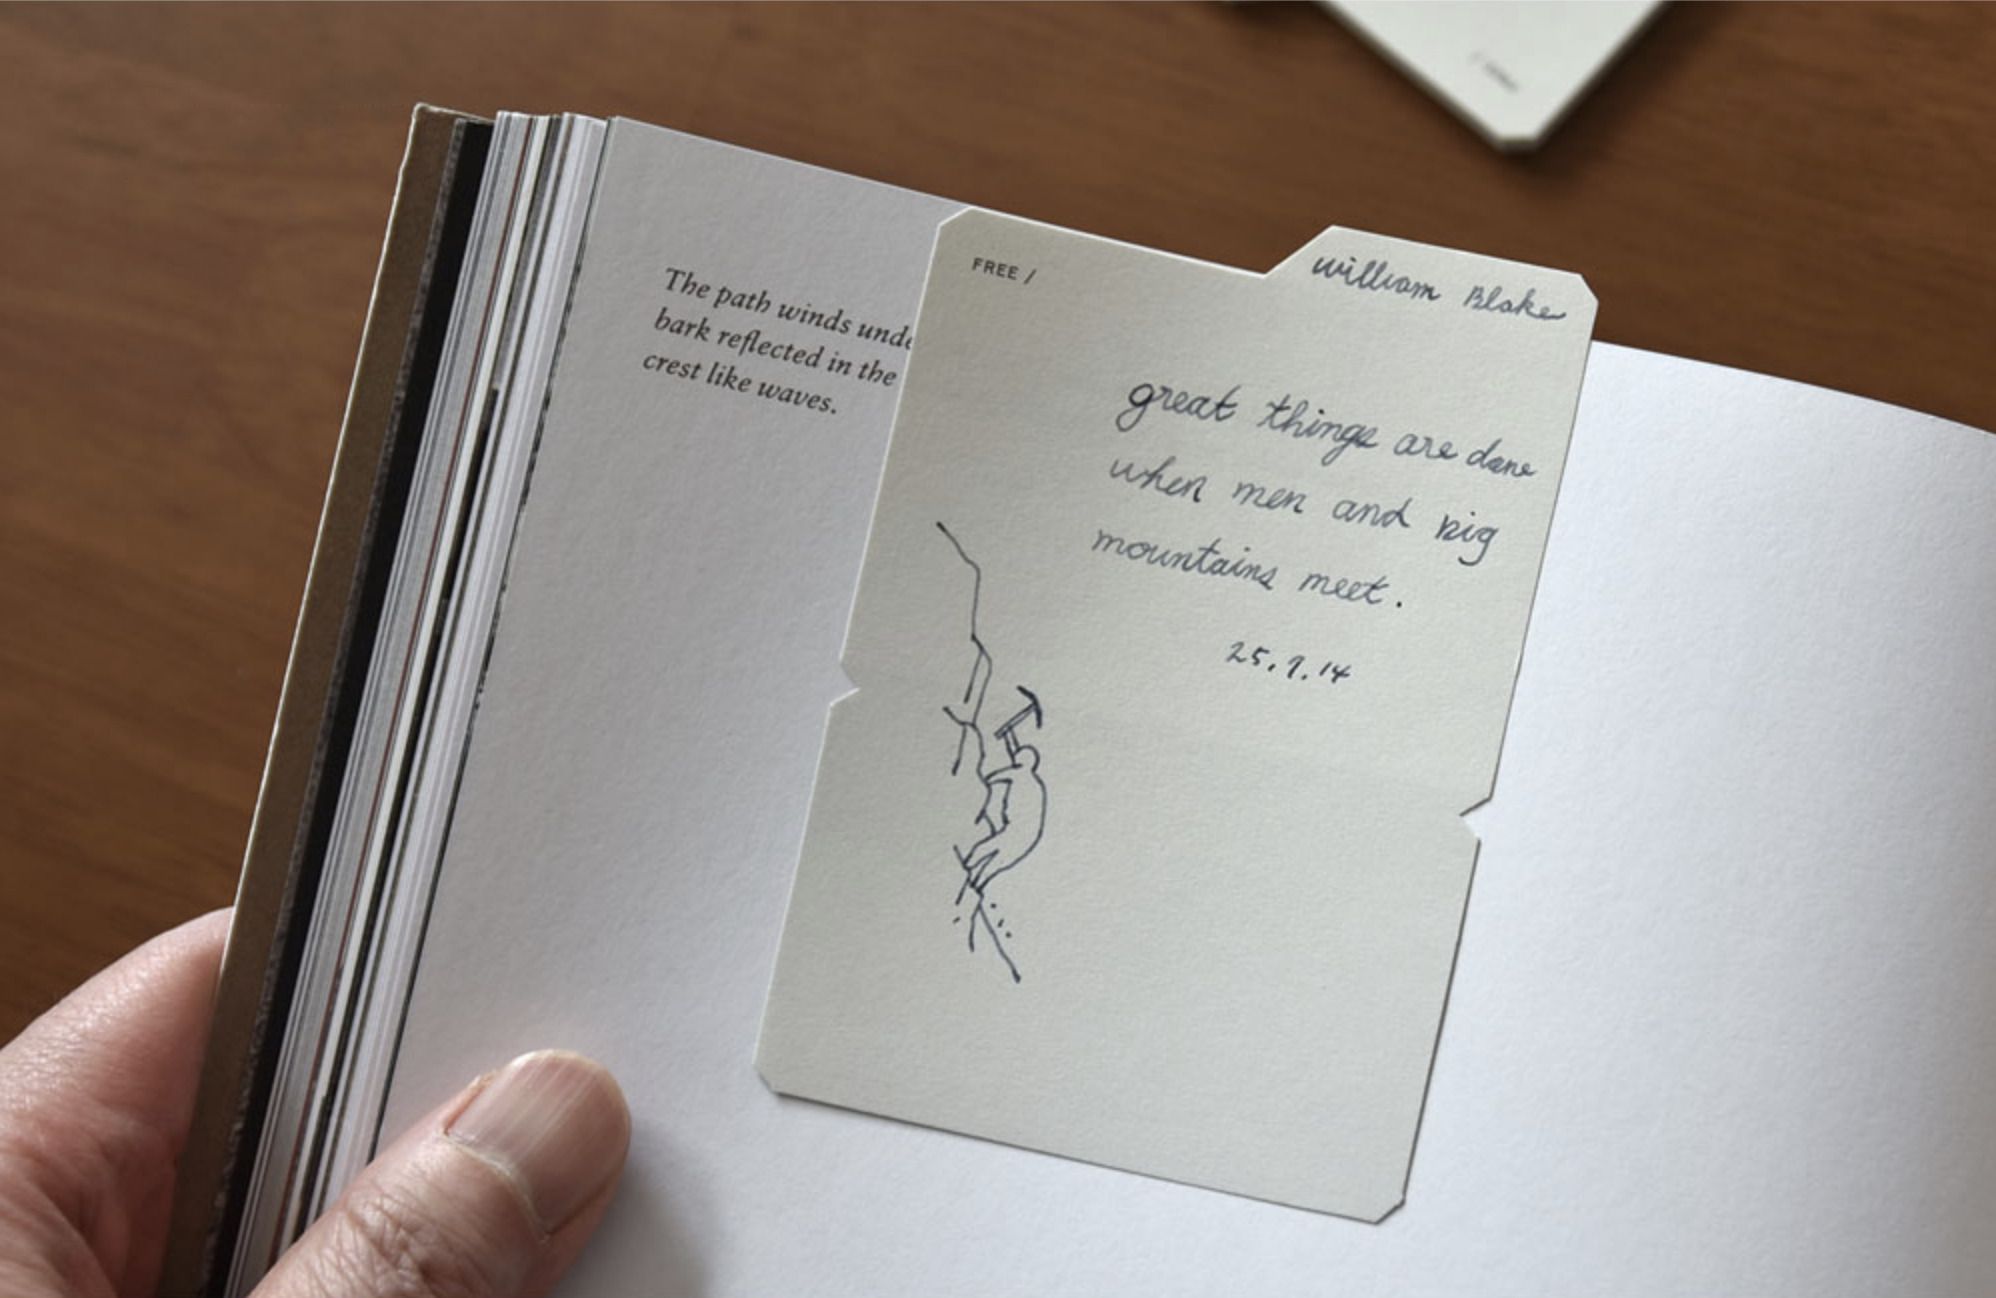 The path winds unde
bark reflected in the
crest like waves.
FREE /
william Blake
great things are done
when men and big
mountains meet.
25.9.14